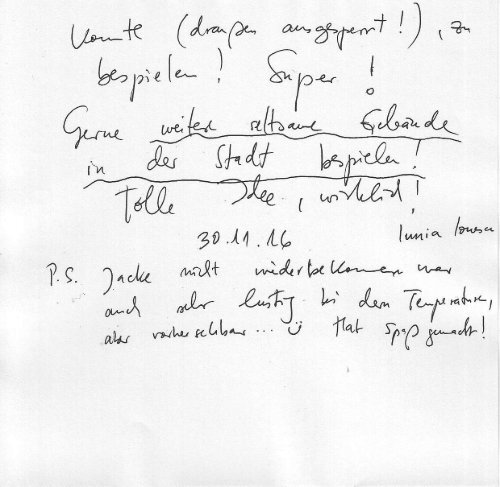 konnte (draußen ausgesperrt!), zu
bespielen! Super!
Gerne weitere seltsame Gebäude
in der Stadt bespielen!
Tolle Idee, wirklich!
30.11.16 Iunia Ionescu
P.S. Jacke nicht wiederbekommen war
auch sehr lustig bei den Temperaturen,
aber vorhersehbar... Hat Spaß gemacht!